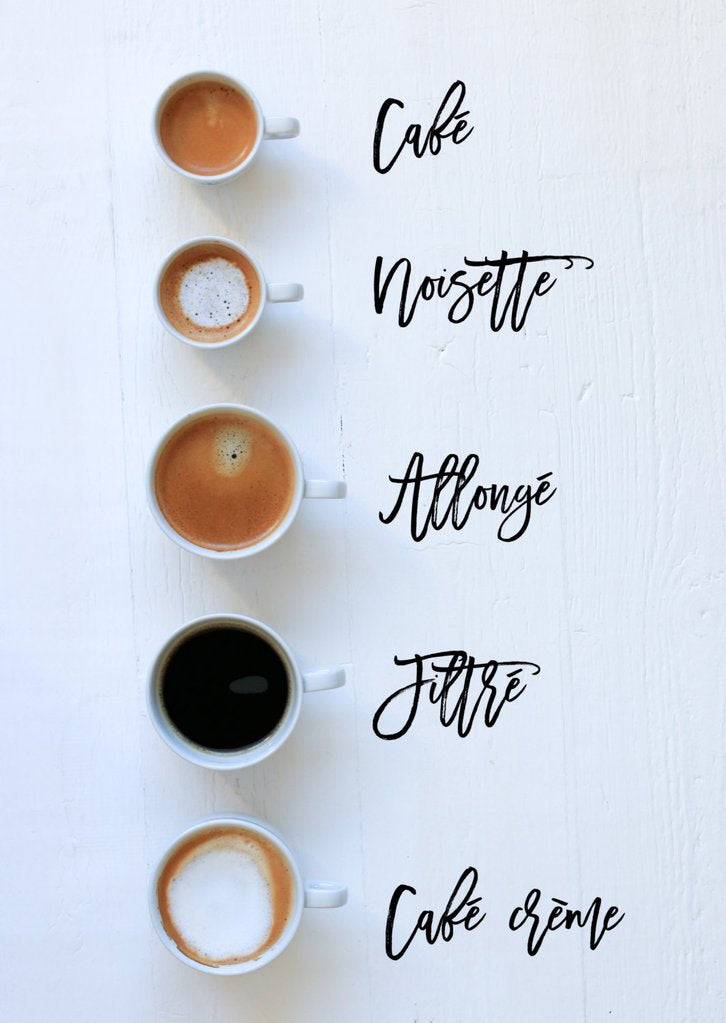 Café
Noisette
Allongé
Filtré
Café crème